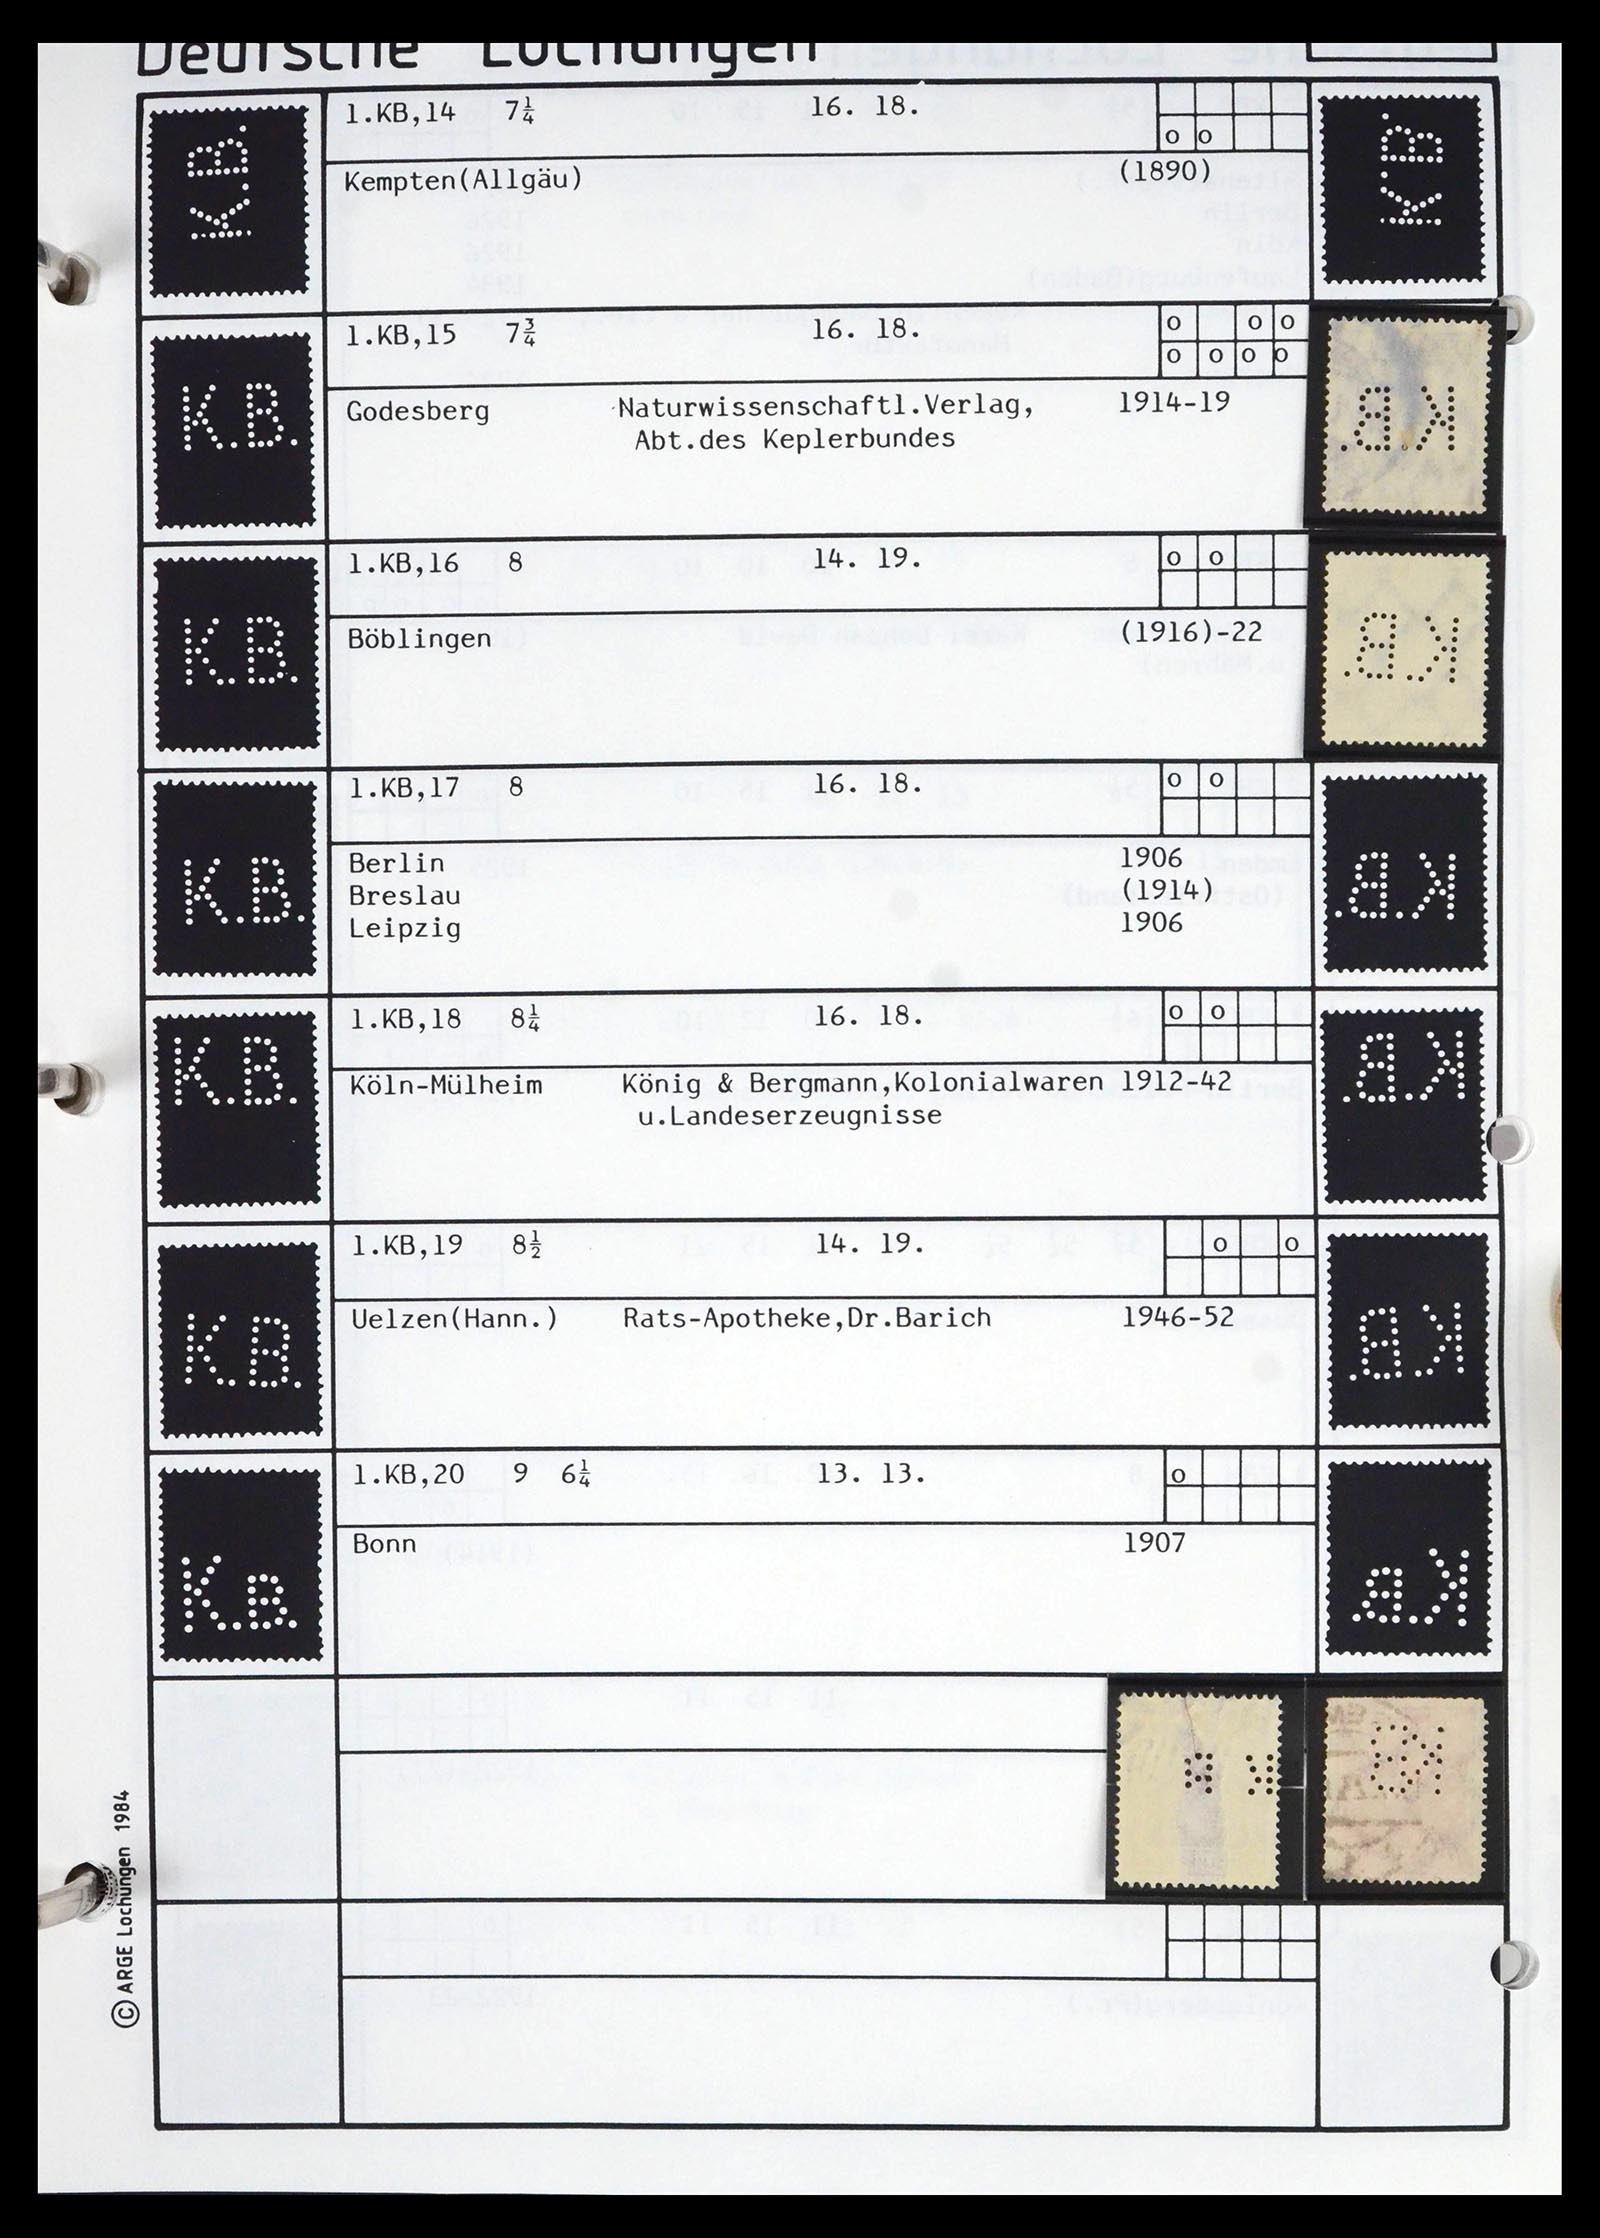 Deutsche Lochungen
K.B. 1.KB,14 7¼ 16. 18. K.B.
o o
Kempten(Allgäu) (1890)
K.B. 1.KB,15 7¾ 16. 18. o o o K.B.
o o o o
Godesberg Naturwissenschaftl.Verlag, 1914-19
Abt.des Keplerbundes
K.B. 1.KB,16 8 14. 19. o o K.B.
Böblingen (1916)-22
K.B. 1.KB,17 8 16. 18. o o K.B.
Berlin 1906
Breslau (1914)
Leipzig 1906
K.B. 1.KB,18 8¼ 16. 18. o o K.B.
Köln-Mülheim König & Bergmann,Kolonialwaren 1912-42
u.Landeserzeugnisse
K.B. 1.KB,19 8½ 14. 19. o o K.B.
Uelzen(Hann.) Rats-Apotheke,Dr.Barich 1946-52
K.B. 1.KB,20 9 6¼ 13. 13. o K.B.
Bonn 1907
© ARGE Lochungen 1984